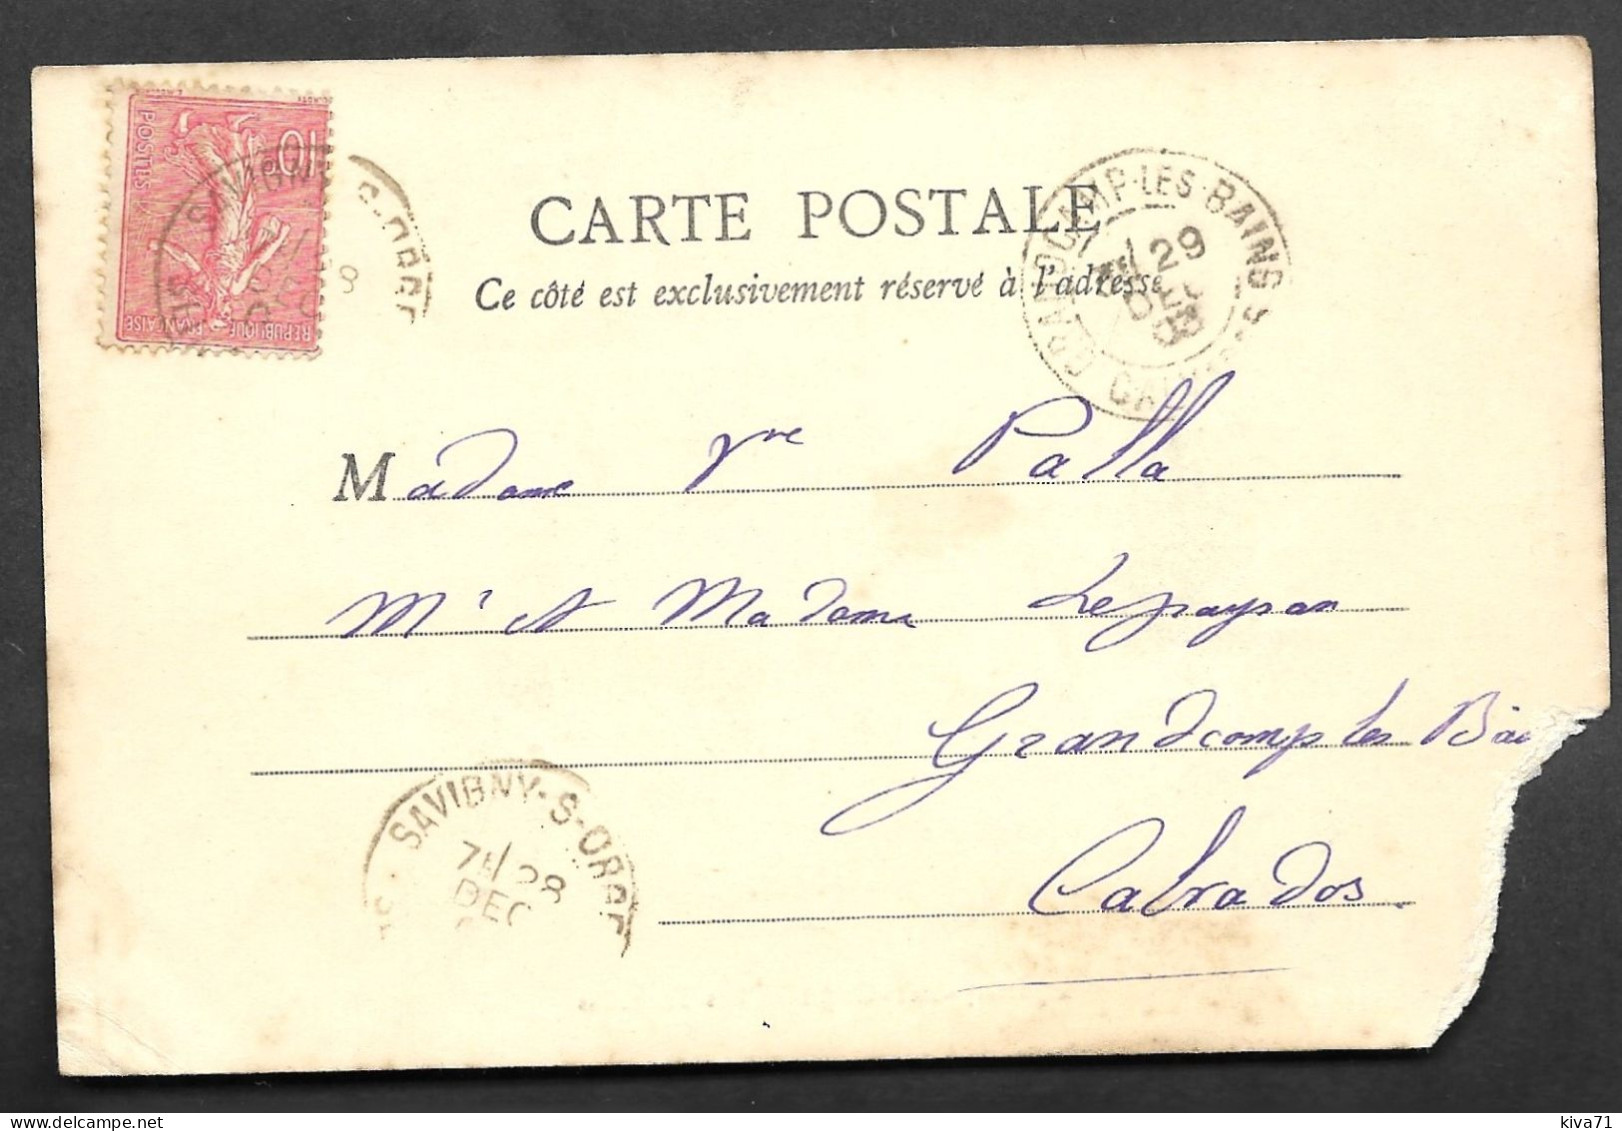 10
POSTES
REPUBLIQUE FRANÇAISE
SAVIGNY-S-ORGE
CARTE POSTALE
Ce côté est exclusivement réservé à l'adresse
GRANDCAMP-LES-BAINS
29
DEC
03
Madame Vve Palla
Mr et Madame Lepaysan
Grandcamp les Bai
Calvados.
SAVIGNY-S-ORGE
7E/28
DEC
kiva71